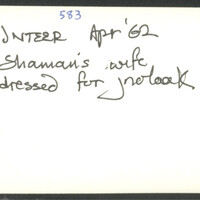 583
INTEER Apr '62
Shaman's wife
dressed for